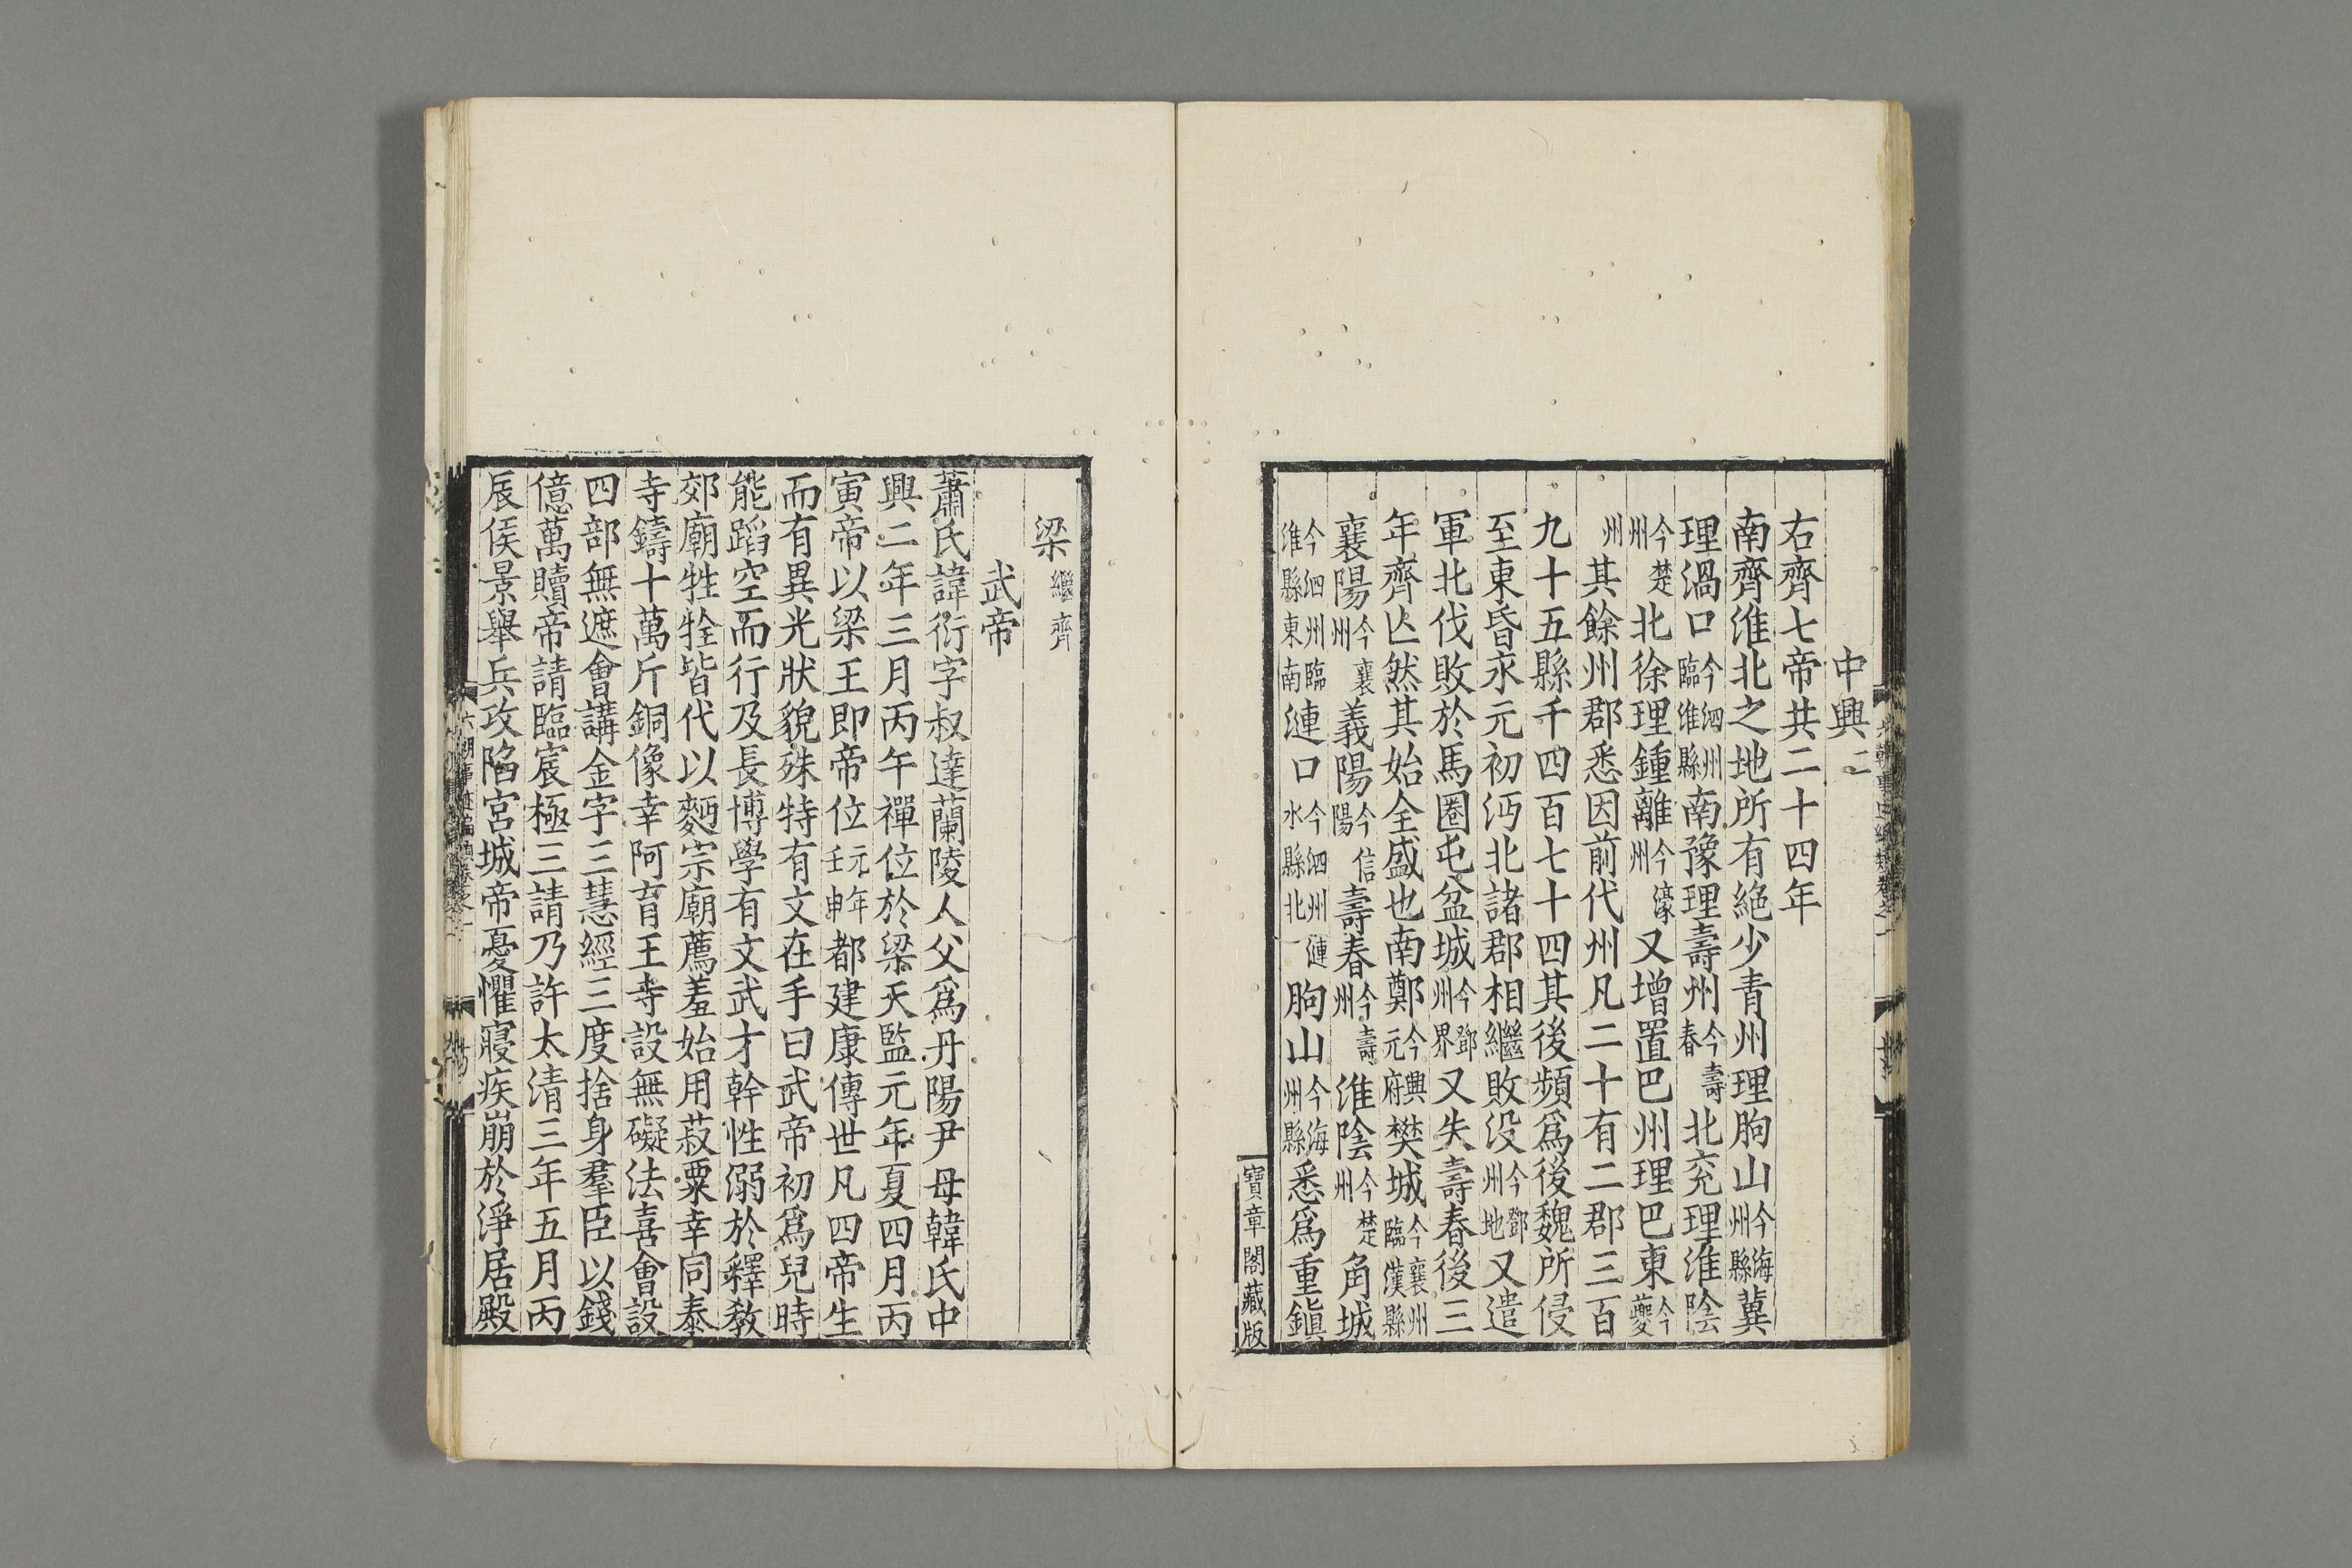 中興二
右齊七帝共二十四年
南齊淮北之地所有絶少青州理朐山今海州縣冀
理渦口今泗州臨淮縣南豫理壽州今壽春北兖理淮陰
今楚州北徐理鍾離今濠州又增置巴州理巴東今夔
州其餘州郡悉因前代州凡二十有二郡三百
九十五縣千四百七十四其後頻爲後魏所侵
至東昏永元初沔北諸郡相繼敗没今鄧州地又遣
軍北伐敗於馬圈屯盆城今鄧州界又失壽春後三
年齊亾然其始全盛也南鄭今興元府樊城今襄州臨漢縣
襄陽今襄州義陽今信陽壽春今壽州淮陰今楚州角城
今泗州臨淮縣東南漣口今泗州漣水縣北朐山今海州縣悉爲重鎭
寶章閣藏版
梁繼齊
武帝
蕭氏諱衍字叔達蘭陵人父爲丹陽尹母韓氏中
興二年三月丙午禪位於梁天監元年夏四月丙
寅帝以梁王即帝位元年壬申都建康傳世凡四帝生
而有異光狀貌殊特有文在手曰武帝初爲兒時
能蹈空而行及長博學有文武才幹性溺於釋敎
郊廟牲牷皆代以麪宗廟薦羞始用蔬粟幸同泰
寺鑄十萬斤銅像幸阿育王寺設無礙法喜會設
四部無遮會講金字三慧經三度捨身羣臣以錢
億萬贖帝請臨宸極三請乃許太清三年五月丙
辰侯景舉兵攻陷宮城帝憂懼寢疾崩於淨居殿